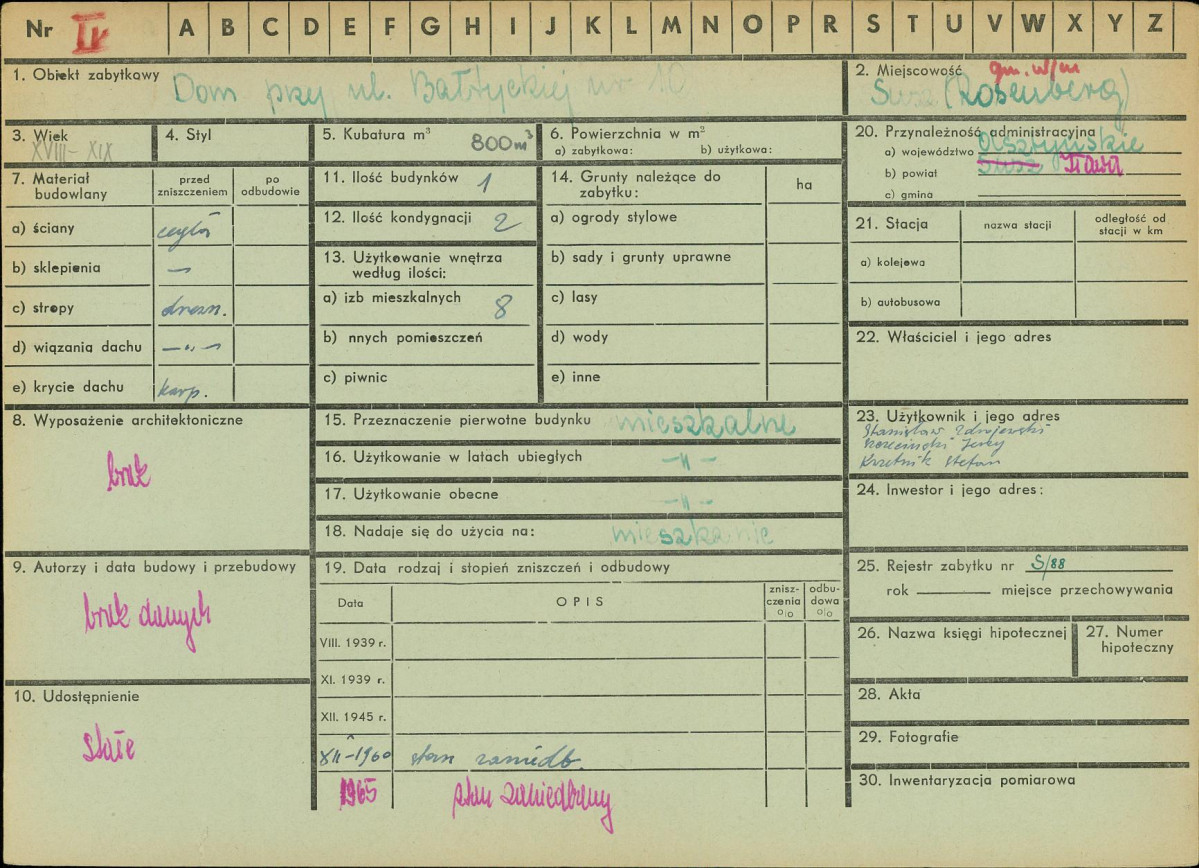 Nr IV A B C D E F G H I J K L M N O P R S T U V W X Y Z
1. Obiekt zabytkowy
Dom przy ul. Bałtyckiej nr 10
2. Miejscowość gm. w/m
Susz (Rosenberg)
3. Wiek
XVIII-XIX
4. Styl
5. Kubatura m³
800 m³
6. Powierzchnia w m²
a) zabytkowa: b) użytkowa:
20. Przynależność administracyjna
a) województwo Olsztyńskie
b) powiat Susz Iława
c) gmina
7. Materiał budowlany
przed zniszczeniem
po odbudowie
a) ściany cegła
b) sklepienia —
c) stropy drewn.
d) wiązania dachu —„—
e) krycie dachu karp.
11. Ilość budynków 1
12. Ilość kondygnacji 2
13. Użytkowanie wnętrza
według ilości:
a) izb mieszkalnych 8
b) nnych pomieszczeń
c) piwnic
14. Grunty należące do
zabytku:
ha
a) ogrody stylowe
b) sady i grunty uprawne
c) lasy
d) wody
e) inne
21. Stacja
nazwa stacji
odległość od
stacji w km
a) kolejowa
b) autobusowa
22. Właściciel i jego adres
8. Wyposażenie architektoniczne
brak
15. Przeznaczenie pierwotne budynku mieszkalne
16. Użytkowanie w latach ubiegłych —„—
17. Użytkowanie obecne —„—
18. Nadaje się do użycia na: mieszkanie
23. Użytkownik i jego adres
Stanisław Zdrojewski
Jerzy
Krzetnik Stefan
24. Inwestor i jego adres:
9. Autorzy i data budowy i przebudowy
brak danych
19. Data rodzaj i stopień zniszczeń i odbudowy
Data
OPIS
znisz-
czenia
%
odbu-
dowa
%
VIII. 1939 r.
XI. 1939 r.
XII. 1945 r.
XII-1960 stan zaniedb.
1965 stan zaniedbany
10. Udostępnienie
stałe
25. Rejestr zabytku nr S/88
rok miejsce przechowywania
26. Nazwa księgi hipotecznej
27. Numer
hipoteczny
28. Akta
29. Fotografie
30. Inwentaryzacja pomiarowa